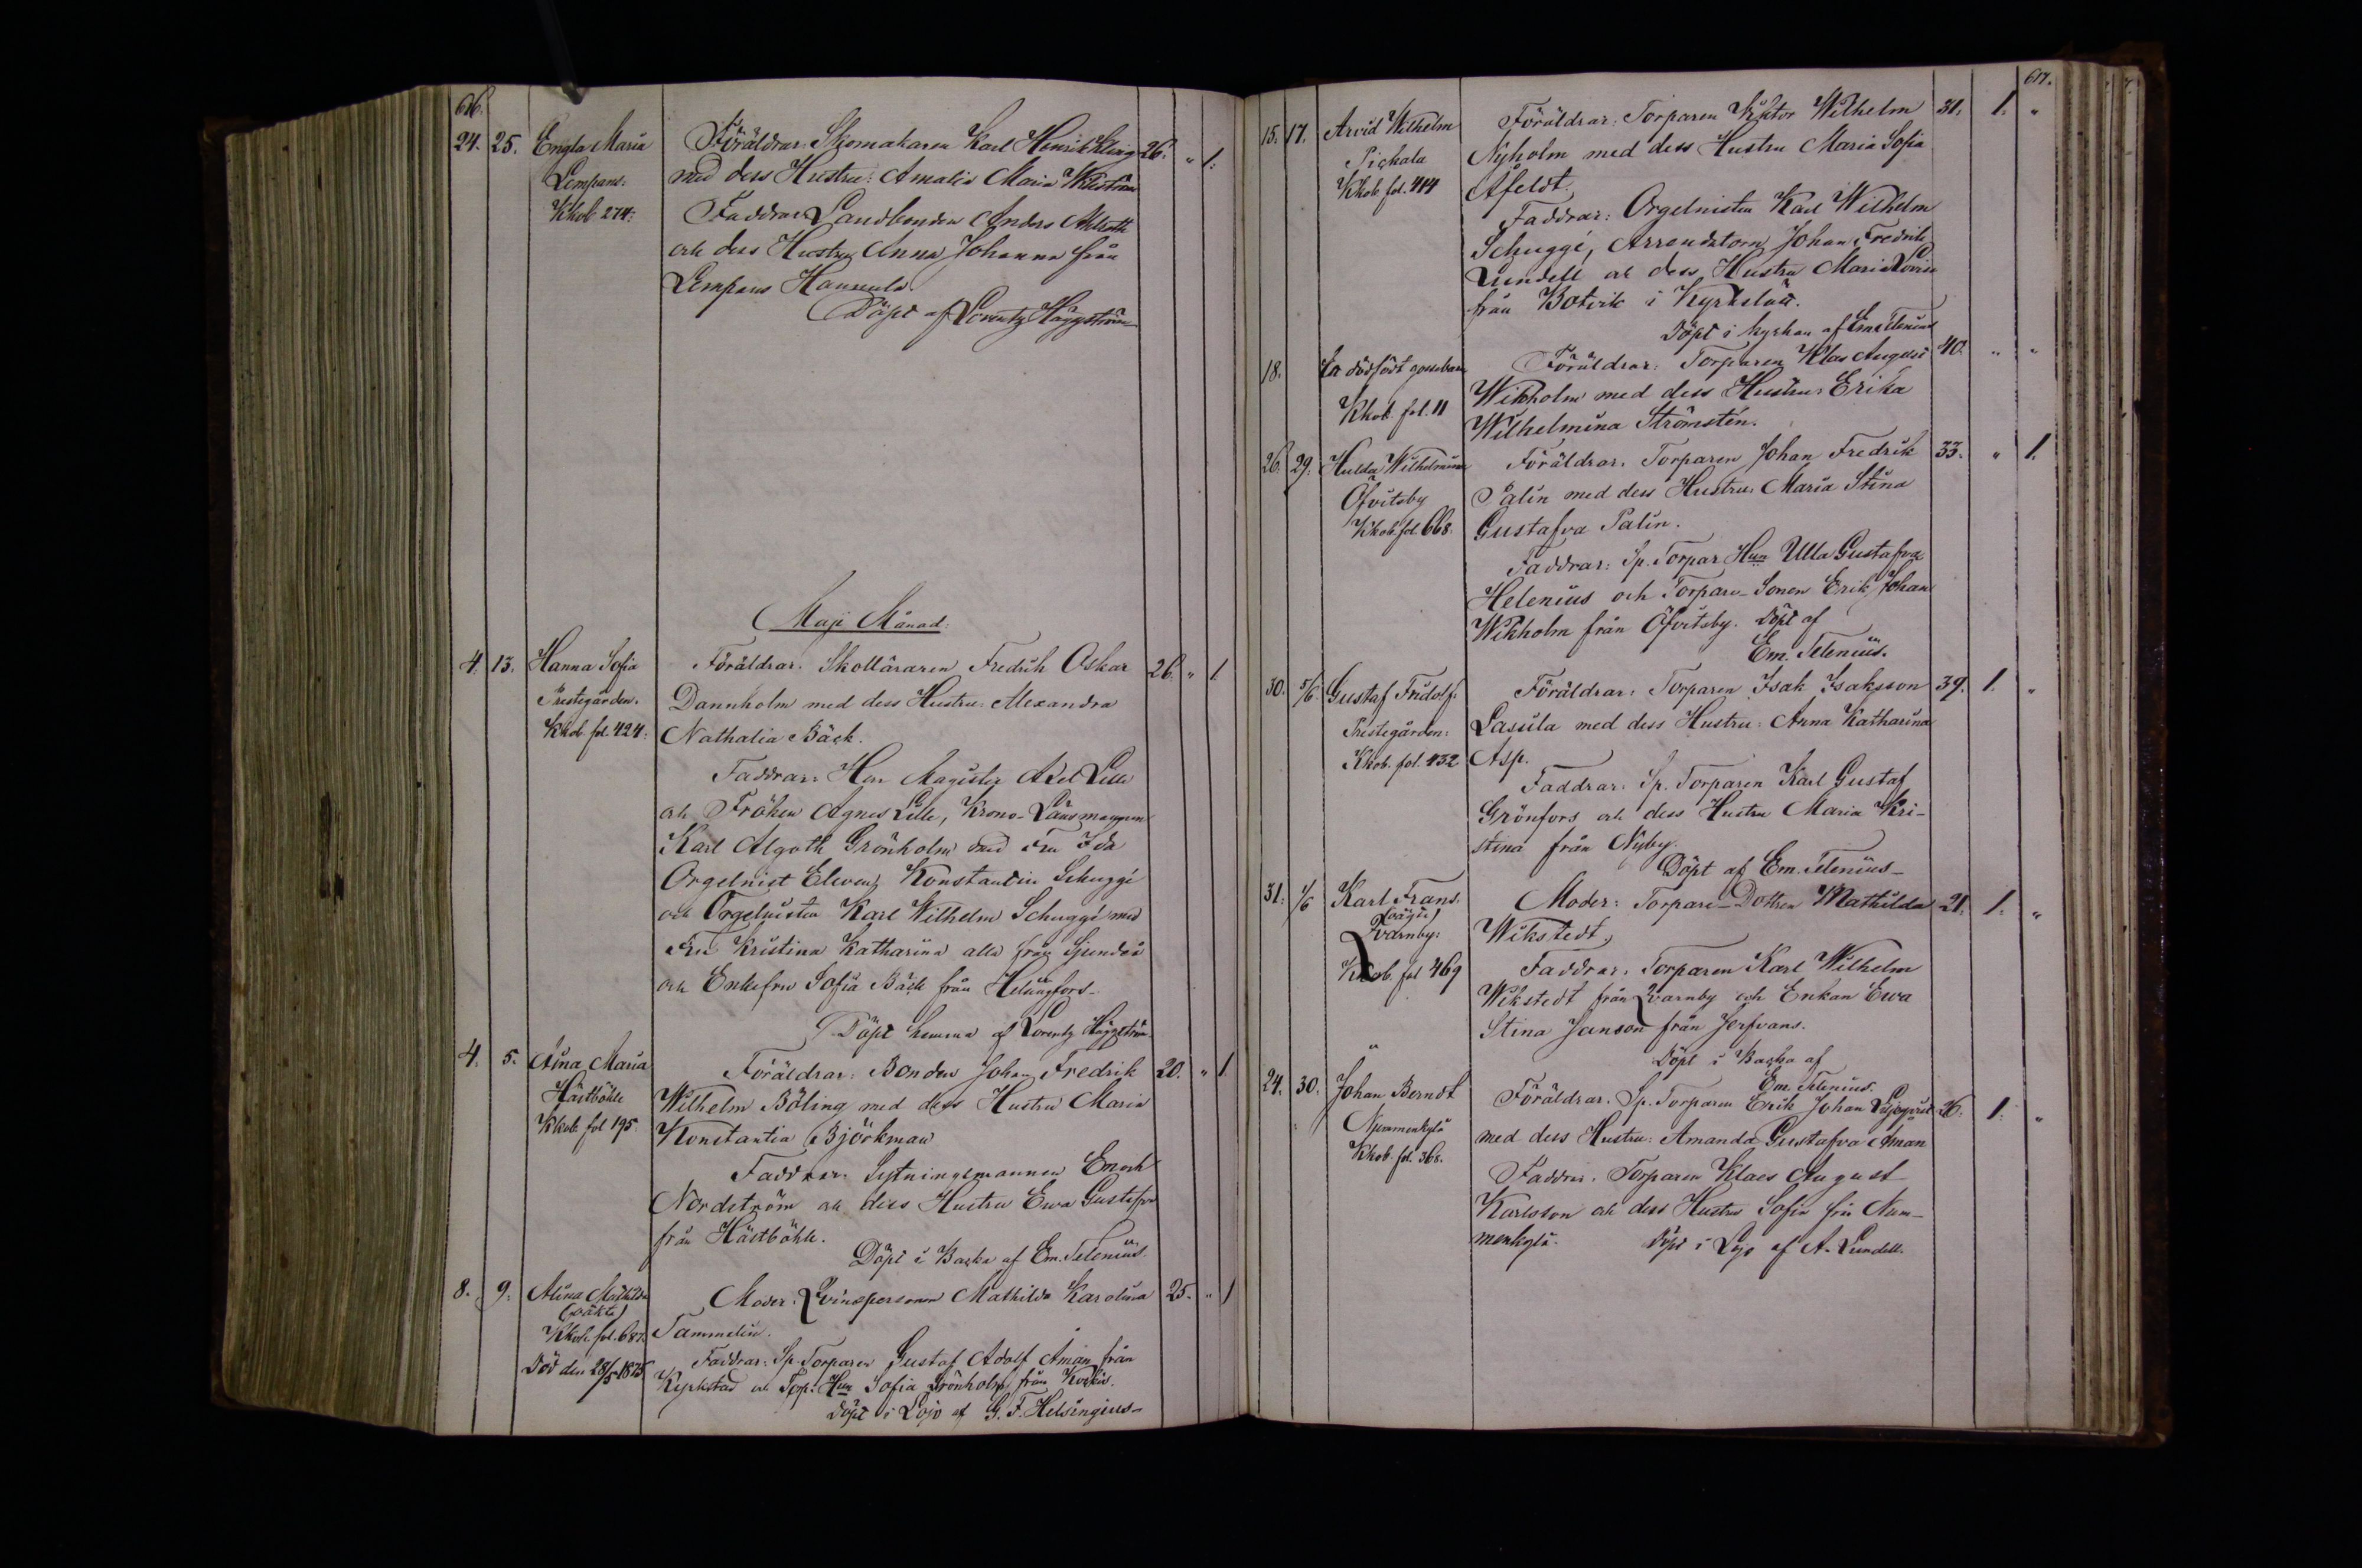 616.
24. 25. Engla Maria Föräldrar: Skomakaren Karl Henrik Kling 26. " 1.
Lempans: med dess Hustru: Amalia Maria Wikström
Kkob 274: Faddrar: Landbonden Anders Ahlroth
och dess Hustru Anna Johanna från
Lempans Hannula.
Döpt af Lorentz Häggström
Maji Månad:
4. 13. Hanna Sofia Föräldrar: Skolläraren Fredrik Oskar 26. " 1.
Prestegården. Dannholm med dess Hustru: Alexandra
Kkob. fol. 424: Nathalia Bäck.
Faddrar: Herr Magister Axel Lille
och Fröken Agnes Lille, Krono-Länsmannen
Karl Algoth Grönholm med Fru Ida
Orgelnist Eleven Konstantin Schuggé
och Orgelnisten Karl Wilhelm Schuggé med
Fru Kristina Katharina alla från Sjundeå
och Enkefru Sofia Bäck från Helsingfors.
Döpt hemma af Lorentz Häggström
4. 5. Aina Maria Föräldrar: Bonden Johan Fredrik 20. " 1.
Hästböhle Wilhelm Böling med dess Hustru Maria
Kkob. fol 195. Konstantia Björkman
Faddrar: Sytningsmannen Enoch
Nordström och dess Hustru Ewa Gustafva
från Hästböhle.
Döpt i Backa af Em. Telenius.
8. 9. Alina Mathilda Moder: Qvinspersonen Mathilda Karolina 25. " 1
(oäkta)
Kkob. fol. 687. Tammelin.
Död den 28/5 1875 Faddrar: Sp. Torparen Gustaf Adolf Åman från
Kyrkstad och Torp. Hun Sofia Grönholm från Koskis.
Döpt i Lojo af G. F. Helsingius-
617.
15. 17. Arvid Wilhelm Föräldrar: Torparen Viktor Wilhelm 31. 1. "
Pickala Nyholm med dess Hustru Maria Sofia
Kkob. fol. 414 Åfeldt.
Faddrar: Orgelnisten Karl Wilhelm
Schuggé, Arrendatorn Johan Fredrik
Lundell och dess Hustru Maria Lovisa
från Botvik i Kyrkslätt.
Döpt i kyrkan af Em. Telenius
18. En dödfödt gossebarn Föräldrar: Torparen Klas August 40. " "
Kkob. fol. 11 Wikholm med dess Hustru: Erika
Wilhelmina Strömstén.
26. 29. Hulda Wilhelmina Föräldrar: Torparen Johan Fredrik 33. " 1.
Öfvitsby Palin med dess Hustru: Maria Stina
Kkob. fol. 668. Gustafva Palin.
Faddrar: Sp. Torpar Hun Ulla Gustafva
Helenius och Torpare-Sonen Erik Johan
Wikholm från Öfvitsby. Döpt af
Em. Telenius.
30. 5/6 Gustaf Fridolf: Föräldrar: Torparen Isak Isaksson 39. 1. "
Prestegården: Lasula med dess Hustru: Anna Katharina
Kkob. fol. 432 Asp.
Faddrar: Sp. Torparen Karl Gustaf
Grönfors och dess Hustru Maria Kri-
stina från Nyby.
Döpt af Em. Telenius-
31. 1/6 Karl Frans. Moder: Torpare-Dottren Mathilda 21. 1. "
(oägta)
Qvarnby: Wikstedt.
Kkob. fol 469 Faddrar: Torparen Karl Wilhelm
Wikstedt från Qvarnby och Enkan Ewa
Stina Janson från Jerfvans.
Döpt i Backa af
Em. Telenius.
24. 30. Johan Berndt Föräldrar: Sp. Torparen Erik Johan Liljeqvist 26. 1. "
Nummenkylä med dess Hustru: Amanda Gustafva Åman
Kkob. fol. 368. Faddrar: Torparen Klaes August
Karlsson och dess Hustru Sofia från Num-
menkylä. Döpt i Lojo af A. Lundell.